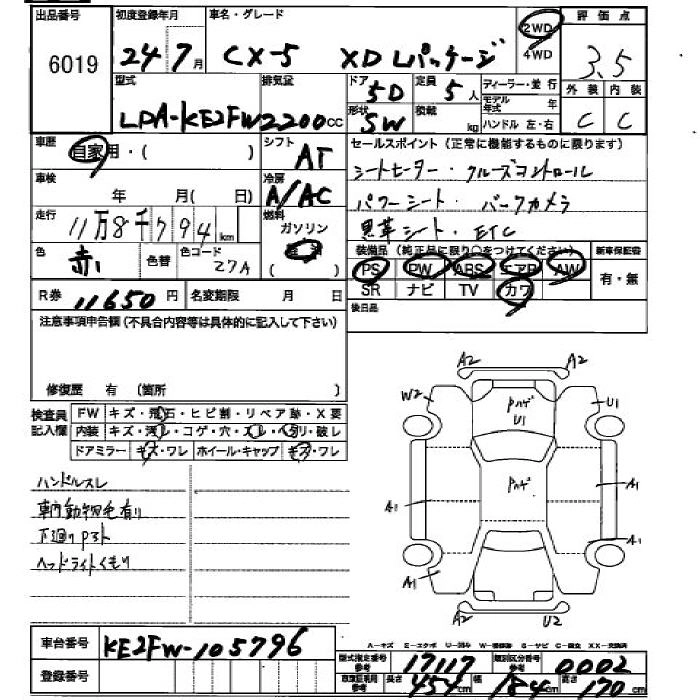 出品番号 初度登録年月 車名・グレード 評価点
6019 24 7月 CX-5 XD Lパッケージ 2WD 4WD 3.5
型式 排気量 ドア 5D 定員 5人 ディーラー・並行 外装 内装
LDA-KE2FW 2200cc 形状 SW 積載 kg モデル年式 年 ハンドル 左・右 C C
車歴 自家用・( ) シフト AT セールスポイント(正常に機能するものに限ります)
シートヒーター・クルーズコントロール
車検 年 月( 日) 冷房 A/AC パワーシート・バックカメラ
走行 11万8千794km 燃料 ガソリン 黒革シート・ETC
色 赤 色替 色コード 27A ( ) 装備品(純正品に限り○をつけてください) 新車保証書
PS PW ABS エアB AW 有・無
SR ナビ TV カワ
R券 11650円 名変期限 月 日 後日品
注意事項申告欄(不具合内容等は具体的に記入して下さい)
修復歴 有 (箇所 )
検査員記入欄 FW キズ・飛石・ヒビ割・リペア跡・X要
内装 キズ・汚レ・コゲ・穴・スレ・ヘタリ・破レ
ドアミラー キズ・ワレ ホイール・キャップ キズ・ワレ
ハンドルスレ
車内動物毛有り
下廻りPサビ
ヘッドライトくもり
A2 A2
W2 Pハゲ U1 U1
Pハゲ
A1 A1
A1 A1
A2 U2
A-キズ E-エクボ U-凹み W-補修跡 S-サビ C-腐食 XX-交換済
車台番号 KE2FW-105796
型式指定番号 参考 17117 類別区分番号 参考 0002
登録番号 車庫証明用 参考 長さ 454cm 幅 184cm 高さ 170cm